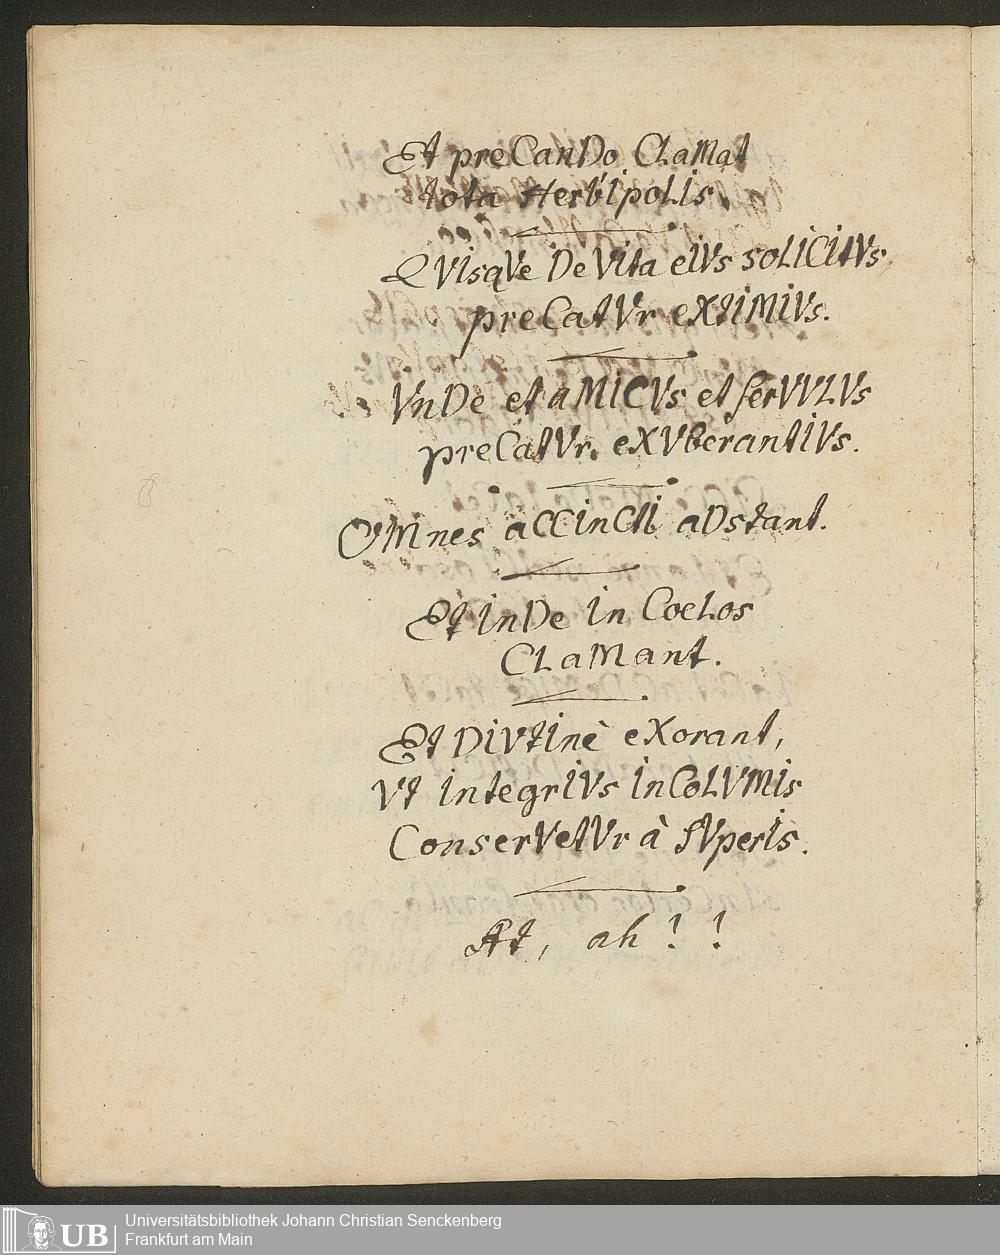 Et preCanDo CLaMat
tota HerbipoLis.
QVisqVe De Vita eiVs soLICitVs
preCatVr eXtiMIVs.
VnDe et aMICVs et serVVLVs
preCatVr eXVberantIVs.
OMnes aCCinCti aDstant.
Et inDe in CoeLos
CLaMant.
Et DIVtinè eXorant,
Vt integrIVs inCoLVMis
ConserVetVr à sVperIs.
At, ah! !
Universitätsbibliothek Johann Christian Senckenberg
UB
Frankfurt am Main